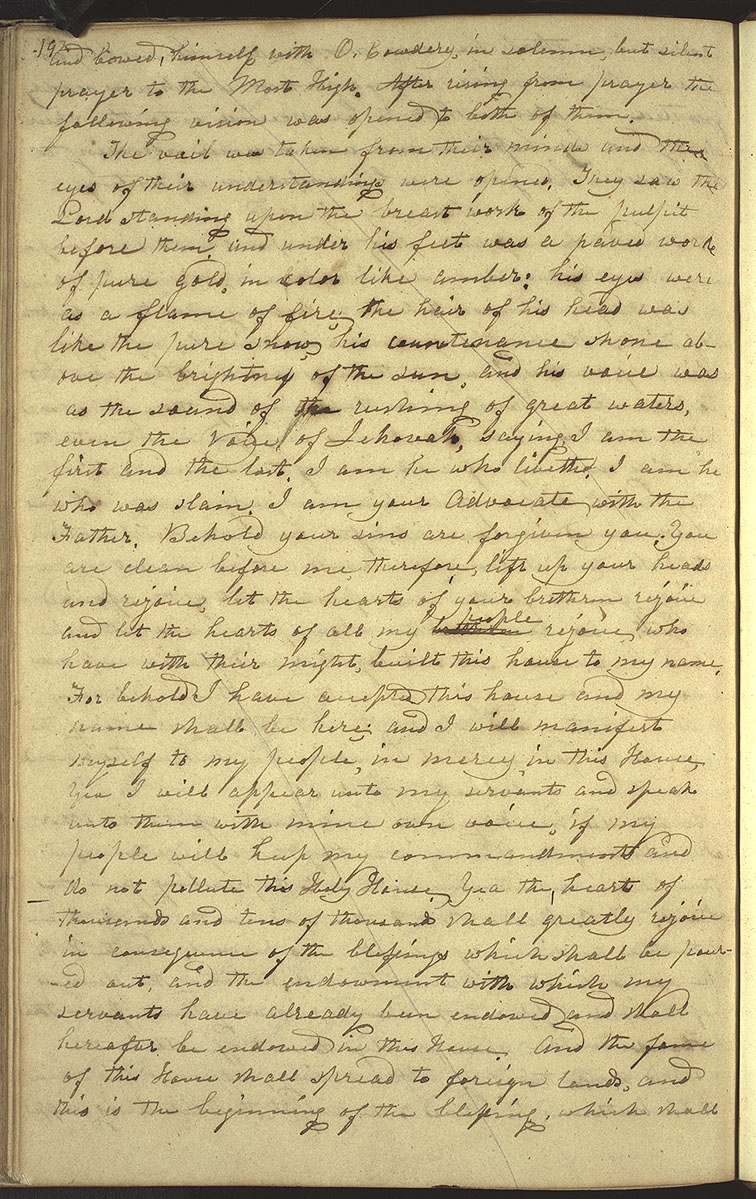 192
and bowed, himself with O. Cowdery, in solemn, but silent
prayer to the Most High. After rising from prayer the
following vision was opened to both of them.
The vail was taken from their minds and the
eyes of their understandings were opened. They saw the
Lord standing upon the breast work of the pulpit
before them, and under his feet was a paved work
of pure gold, in color like amber: his eyes were
as a flame of fire; the hair of his head was
like the pure snow, his countenance shone ab-
ove the brightness of the sun, and his voice was
as the sound of the rushing of great waters,
even the Voice of Jehovah, saying, I am the
first and the last. I am he who liveth. I am he
who was slain. I am your Advocate with the
Father. Behold your sins are forgiven you. You
are clean before me, therefore, lift up your heads
and rejoice, let the hearts of your brethren rejoice
and let the hearts of all my brethren people rejoice, who
have with their might, built this house to my name.
For behold I have accepted this house and my
name shall be here; and I will manifest
myself to my people, in mercy, in this House,
Yea I will appear unto my servants and speak
unto them with mine own voice, if my
people will keep my commandments and
do not pollute this Holy House. Yea the heart of
thousands and tens of thousands shall greatly rejoice
in consequence of the blessings which shall be pour-
-ed out, and the endowment with which my
servants have already been endowed and shall
hereafter be endowed in this House. And the fame
of this House shall spread to foreign lands, and
this is the beginning of the blessing, which shall